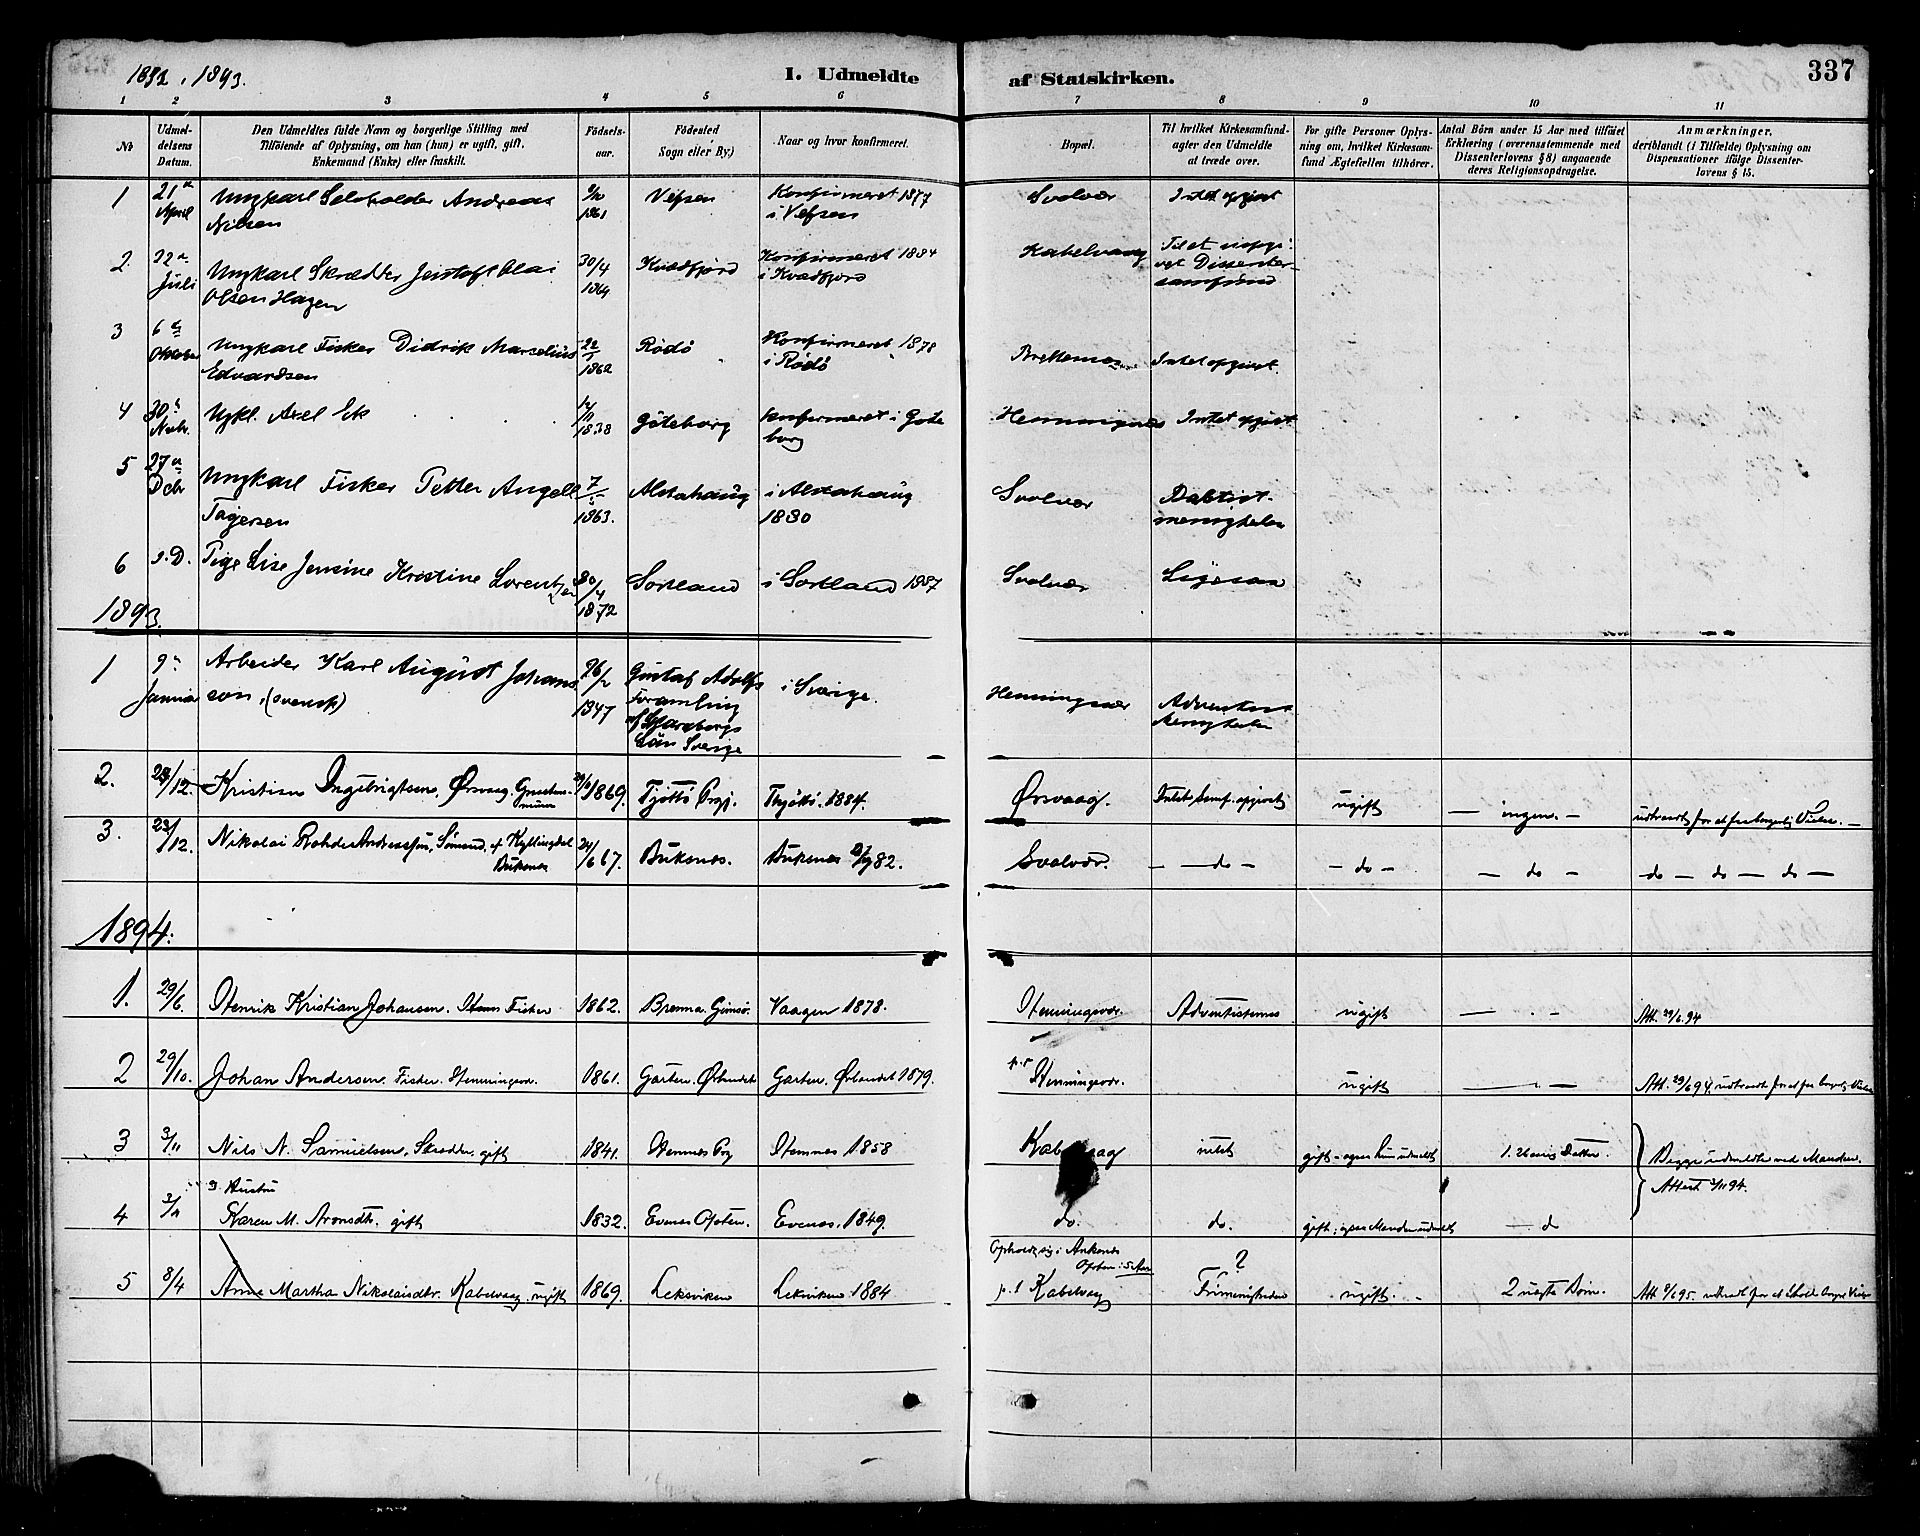 1892, 1893.
I. Udmeldte af Statskirken.
337
1 2 3 4 5 6 7 8 9 10 11
No
Udmel-
delsens
Datum.
Den Udmeldtes fulde Navn og borgerlige Stilling med
Tilføiende af Oplysning, om han (hun) er ugift, gift,
Enkemand (Enke) eller fraskilt.
Fødsels-
aar.
Fødested
Sogn eller By)
Naar og hvor konfirmeret.
Bopæl.
Til hvilket Kirkesamfund-
agter den Udmeldte
at træde over.
For gifte Personer Oplys-
ning om, hvilket Kirkesam-
fund Ægtefællen tilhører.
Antal Børn under 15 Aar med tilføiet
Erklæring (overensstemmende med
Dissenterlovens § 8) angaaende
deres Religionsopdragelse.
Anmærkninger,
deriblandt (i Tilfælde) Oplysning om
Dispensationer ifølge Dissenter-
lovens § 15.
1 21de April Ungkarl Selvholder Andreas Nilsen 1861 Vefsen Konfirmeret 1877 i Vefsen Svolvær Intet opgivet
2. 22de Juli Ungkarl Skrædder Olai Olsen Hagen 30/4 1864 Kvædfjord Konfirmeret 1884 i Kvædfjord Kabelvaag Til et uopgivet Dissentersamfund
3 6te Oktober Ungkarl Fisker Didrik Marselius Edvardsen 22/1 1862 Rødø Konfirmeret 1878 i Rødø Brettesnes Intet opgivet.
4 30te Novbr. Ugkl. Axel Ek 1838 Göteborg konfirmeret i Gøteborg Henningsvær Intet opgivet
5 27de Dcbr Ungkarl Fisker Petter Angell 7/ 1863. Alstahaug i Alstahaug 1880 Svolvær Babtistmenigheden
6 s.D. Pige Lise Jensine Kristine Lorentzen 30/4 1872 Sortland i Sortland 1887 Svolvær Ligesaa
1893.
1 9de Januar Arbeider Karl August Johansson, (svensk) 26/2 1847 Gustaf Adolfs Församling af Län Sverige i Sverige. Henningsvær Adventistmenigheden
2. 28/12. Kristian Ingebrigtsen, Ørsvaag, 1869. Tjøttø Prgj. Thjøttø. 1884. Ørsvaag. Intet Samf. opgivet ugift — ingen. — udtraadt for at faa borgerlig Vielse. —
3. 23/12. Nikolai Rohde Andreassen, Sømand, af Kyllingdal Buksnes 24/6 67. Buksnes. Buksnes 82. Svolvær. — do — — do — — do — do — do — do —
1894.
1. 29/6. Henrik Kristian Johansen. Fisker 1862. Brenna. Gimsø. Vaagan 1878. Henningsvær. Adventisternes ugift — . — Att. 29/6.94
2 29/10. Johan Andersen. Fisker. Henningsvær. 1861. Garten. Ørlandet Garten. Ørlandet 1879. p.t Henningsvær. ugift — . — Att. 29/6 94. udtraadt for at faa borgerlig Vielse
3 3/11 Nils N. Samuelsen, Skrædder. gift 1841. Hemnes Prg Hemnes 1858 Kabelvaag intet gift – ogsaa hun udmeldt 1. 2 Begge udmeldte ved Manden.
Attest 3/11 94.
4 3/11 Hustru
Karen M. Aronsdtr. gift 1832. Evenes Ofoten. Evenes. 1849. do. do. gift; ogsaa Manden udmeldt — do
5 8/4 Anne Martha Nikolaisdtr. Kabelvaag. ugift 1869. Leksviken Leksviken. 1884 Opholdt sig i Ankenes Ofoten i 5 Aar p.t Kabelvaag ? Frimenigheden ugift. 2 uægte Børn. Att 8/4 95. udtraadt for at